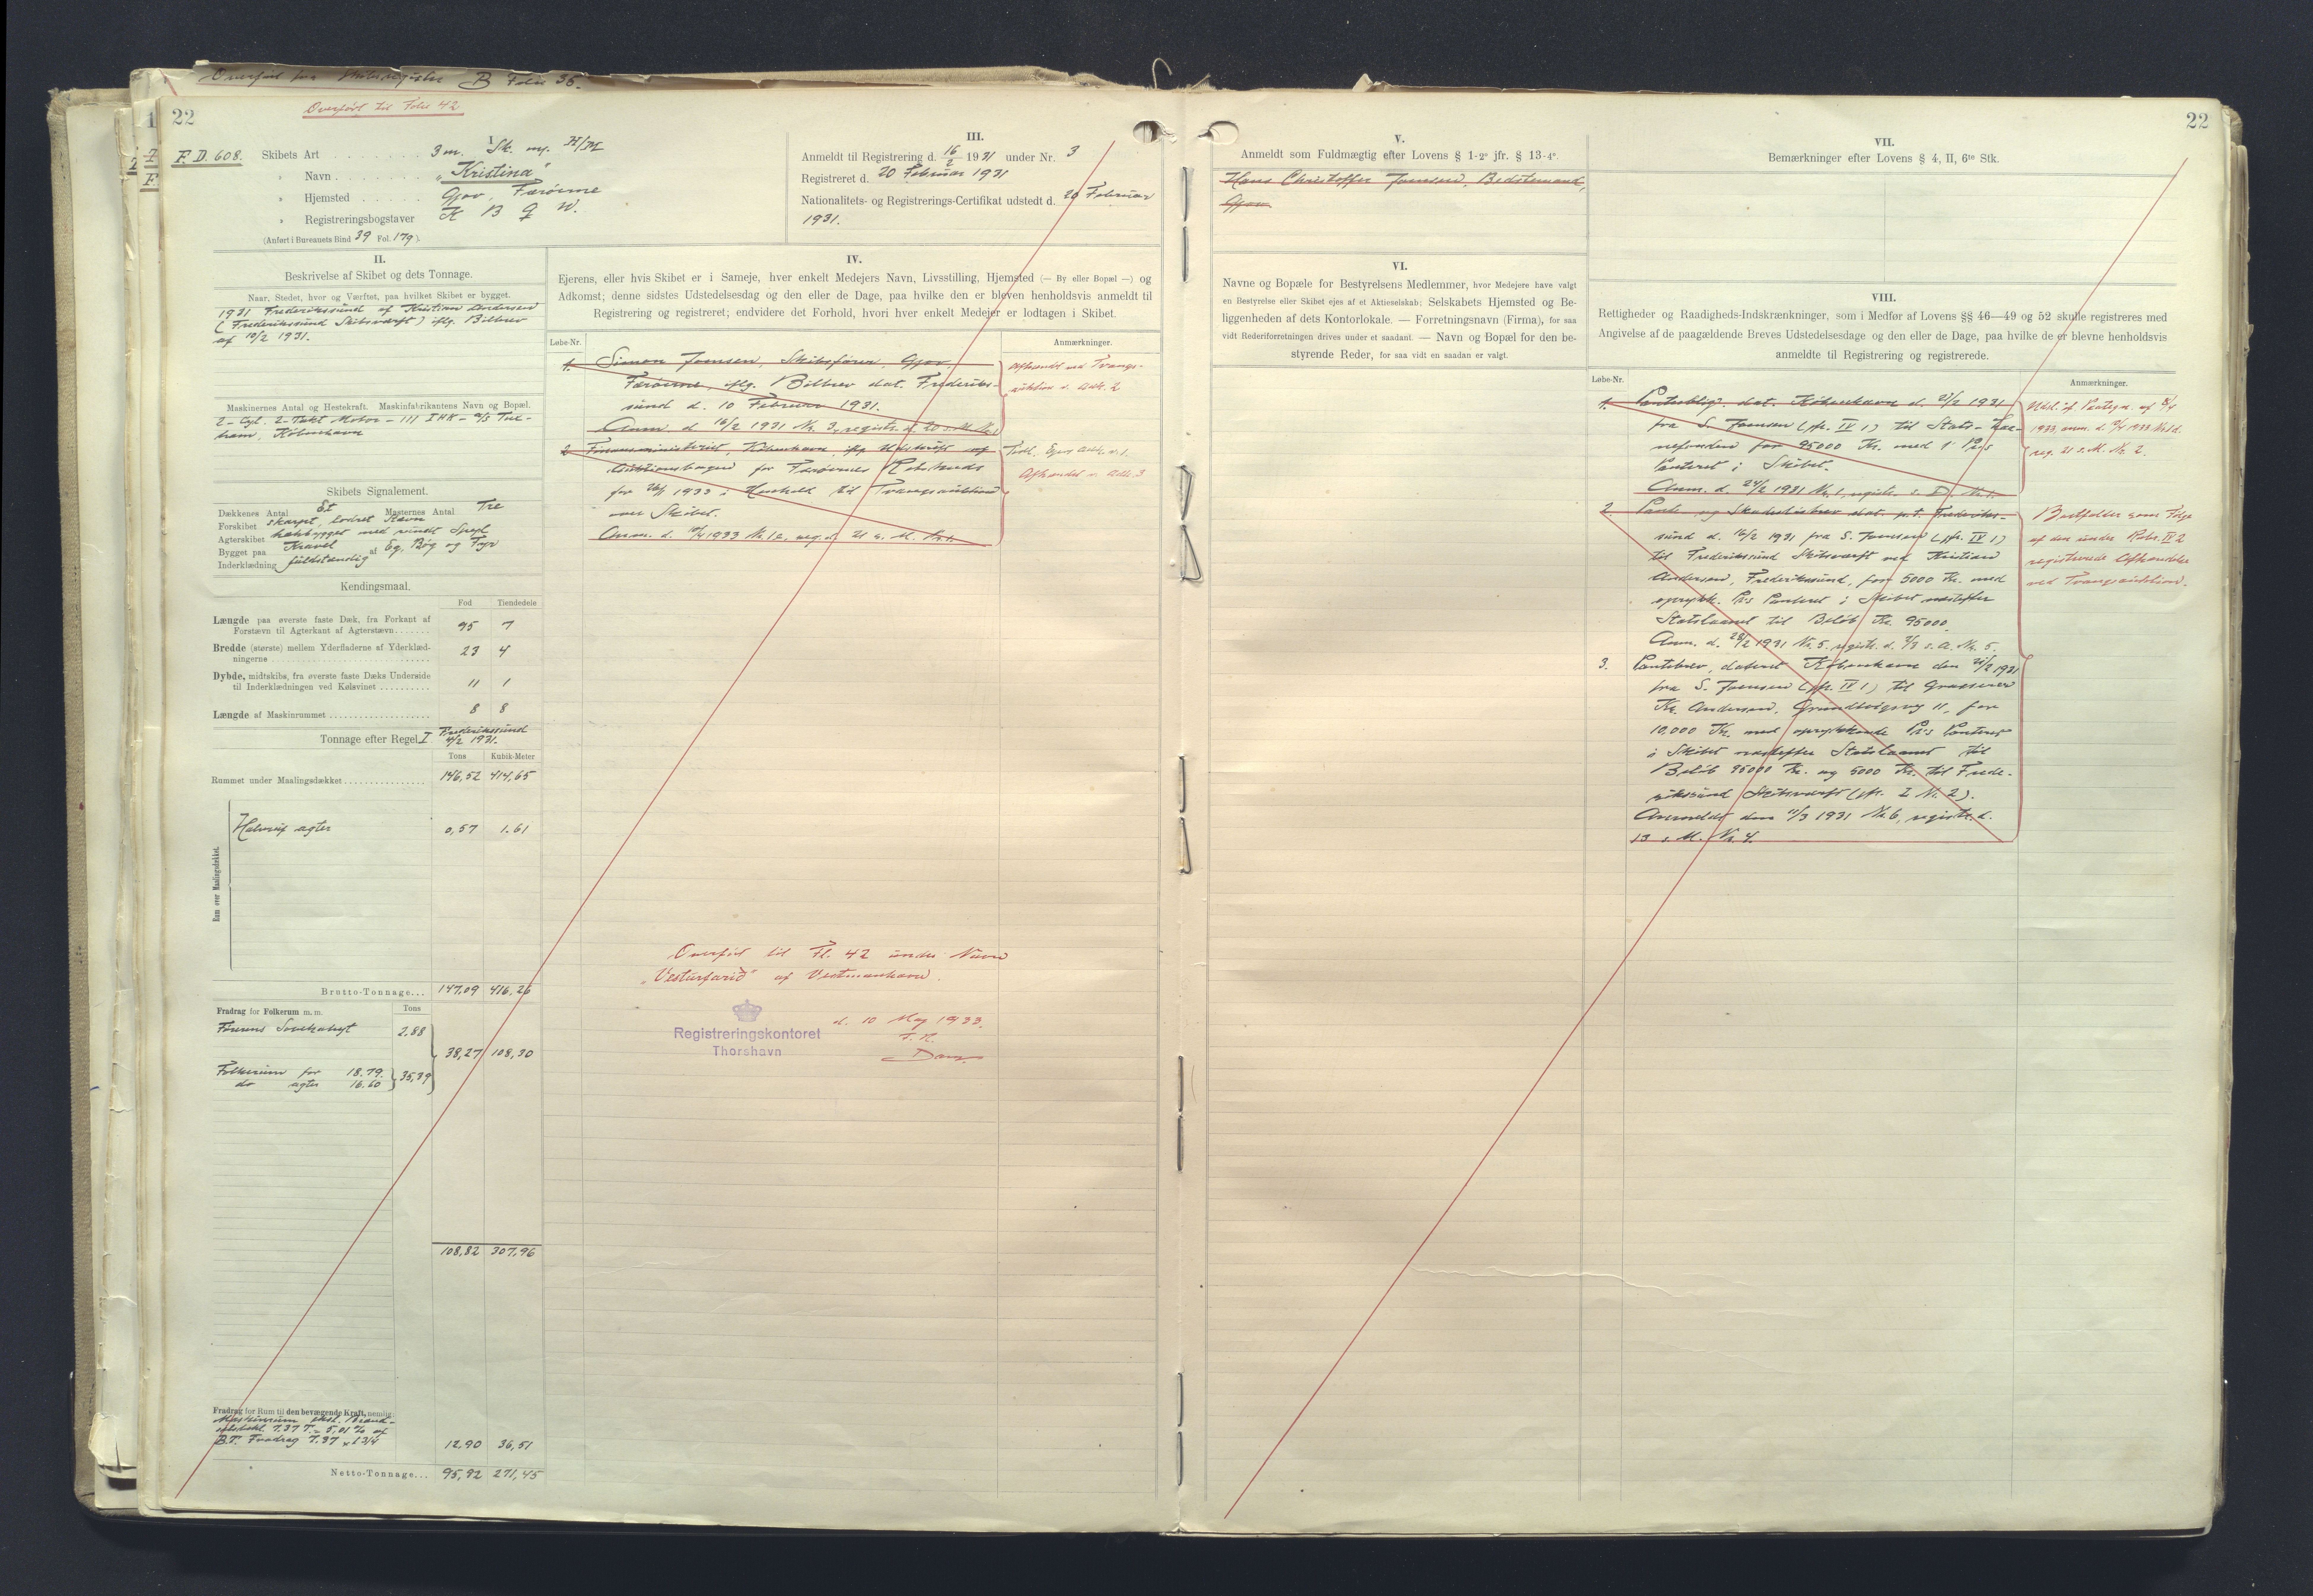 Overført fra Skibsregister B Folio 36.
22
Overført til Folio 42
22
F. D. 608.
I.
Skibets Art 3m. Sk. m. H/M
" Navn „Kristina"
" Hjemsted Gjov, Færöerne
" Registreringsbogstaver K B Q W.
(Anført i Bureauets Bind 39 Fol. 179).
III.
Anmeldt til Registrering d. 16/2 1931 under Nr. 3
Registreret d. 20 Februar 1931
Nationalitets- og Registrerings-Certifikat udstedt d. 20 Februar
1931.
II.
Beskrivelse af Skibet og dets Tonnage.
Naar, Stedet, hvor og Værftet, paa hvilket Skibet er bygget.
1931 Frederikssund af Kristian Andersen
(Frederikssund Skibsværft) iflg. Bilbrev
af 10/2 1931.
Maskinernes Antal og Hestekraft. Maskinfabrikantens Navn og Bopæl.
2-Cyl. 2-Takt Motor - 111 IHK - A/S Tux-
ham, København
Skibets Signalement.
Dækkenes Antal Et Masternes Antal Tre
Forskibet skarpt, lodret Stævn
Agterskibet hækbygget med rundt Spejl
Bygget paa Kravel af Eg, Bøg og Fyr
Inderklædning fuldstændig
Kendingsmaal.
Fod Tiendedele
Længde paa øverste faste Dæk, fra Forkant af
Forstævn til Agterkant af Agterstævn 95 7
Bredde (største) mellem Yderfladerne af Yderklæd-
ningerne 23 4
Dybde, midtskibs, fra øverste faste Dæks Underside
til Inderklædningen ved Kølsvinet 11 1
Længde af Maskinrummet 8 8
Tonnage efter Regel I Frederikssund
1931.
Tons Kubik-Meter
Rummet under Maalingsdækket 146,52 414,65
Rum over Maalingsdækket.
Halvrüf agter 0,57 1.61
Brutto-Tonnage... 147,09 416,26
Fradrag for Folkerum m. m. Tons
Førerens Sovekahyt 2.88
38,27 108,30
Folkerum for 18.79.
do agter 16.60 } 35,39
108,82 307,96
Fradrag for Rum til den bevægende Kraft, nemlig:
Maskinrum ekskl. Brænd-
7.37 T. = 5.01 % af
B.T. Fradrag 7.37 x 1 3/4 12,90 36,51
Netto-Tonnage... 95,92 271,45
IV.
Ejerens, eller hvis Skibet er i Sameje, hver enkelt Medejers Navn, Livsstilling, Hjemsted (— By eller Bopæl —) og
Adkomst; denne sidstes Udstedelsesdag og den eller de Dage, paa hvilke den er bleven henholdsvis anmeldt til
Registrering og registreret; endvidere det Forhold, hvori hver enkelt Medejer er lodtagen i Skibet.
Løbe-Nr. Anmærkninger.
1. Simon Joensen, Skibsfører, Gjov,
Færöerne, iflg. Bilbrev dat. Frederiks-
sund d. 10 Februar 1931.
Anm. d. 16/2 1931 Nr. 3, registr. d. 20 s. M. Nr. 1
Afhændet ved Tvangs-
auktion s. Adk. 2
2. Finansministeriet, København iflg. Udskrift af
Auktionsbogen for Færöernes Retskreds
for 26/1 1933 i Henhold til Tvangsauktion
over Skibet.
Anm. d. 10/4 1933 Nr. 12, reg. d. 21 s. M. Nr. 1.
Tidl. Ejer Adk. nr. 1.
Afhændet s. Adk. 3
Overført til Fl. 42 under Navn
„Vesturfarið" af Vestmanhavn.
Registreringskontoret
Thorshavn
d. 10 Maj 1933.
F. R.
V.
Anmeldt som Fuldmægtig efter Lovens § 1-2° jfr. § 13-4°.
Hans Christoffer Joensen, Bedstemand,
Gjov.
VI.
Navne og Bopæle for Bestyrelsens Medlemmer, hvor Medejere have valgt
en Bestyrelse eller Skibet ejes af et Aktieselskab; Selskabets Hjemsted og Be-
liggenheden af dets Kontorlokale. — Forretningsnavn (Firma), for saa
vidt Rederiforretningen drives under et saadant. — Navn og Bopæl for den be-
styrende Reder, for saa vidt en saadan er valgt.
VII.
Bemærkninger efter Lovens § 4, II, 6te Stk.
VIII.
Rettigheder og Raadigheds-Indskrænkninger, som i Medfør af Lovens §§ 46—49 og 52 skulle registreres med
Angivelse af de paagældende Breves Udstedelsesdage og den eller de Dage, paa hvilke de er blevne henholdsvis
anmeldte til Registrering og registrerede.
Løbe-Nr. Anmærkninger.
1. Panteoblig. dat. København d. 21/2 1931
fra S. Joensen (jfr. IV 1) til Stats-Laa-
nefonden for 95000 Kr. med 1 P.R.
Panteret i Skibet.
Anm. d. 24/2 1931 Nr. 1, registr. s. D. Nr. 1.
Udsl. if. Paategn. af 8/4
1933, anm. d. 10/4 1933 Nr. 12.
reg. 21 s. M. Nr. 2.
2. Pante og Skadesløsbrev dat. p.t. Frederiks-
sund d. 16/2 1931 fra S. Joensen (jfr. IV 1)
til Frederikssund Skibsværft ved Kristian
Andersen, Frederikssund, for 5000 Kr. med
oprykk. Pr.s Panteret i Skibet næstefter
Statslaanet til Beløb Kr. 95000.
Anm. d. 28/2 1931 Nr. 5. registr. d. 2/3 s. A. Nr. 5.
3. Pantebrev, dateret København den 21/2 1931
fra S. Joensen (jfr. IV 1) til Grosserer
Kr. Andersen, Grundtvigsvej 11, for
10.000 Kr. med oprykkende Pr.s Panteret
i Skibet næstefter Statslaanet til
Beløb 95000 Kr. og 5000 Kr. til Frede-
rikssund Skibsværft (jfr. I Nr. 2).
Anmeldt den 11/3 1931 Nr. 6, registr. d.
13 s. M. Nr. 4.
Bortfalder som Følge
af den under Rubr. IV 2
registrerede Afhændelse
ved Tvangsauktion.